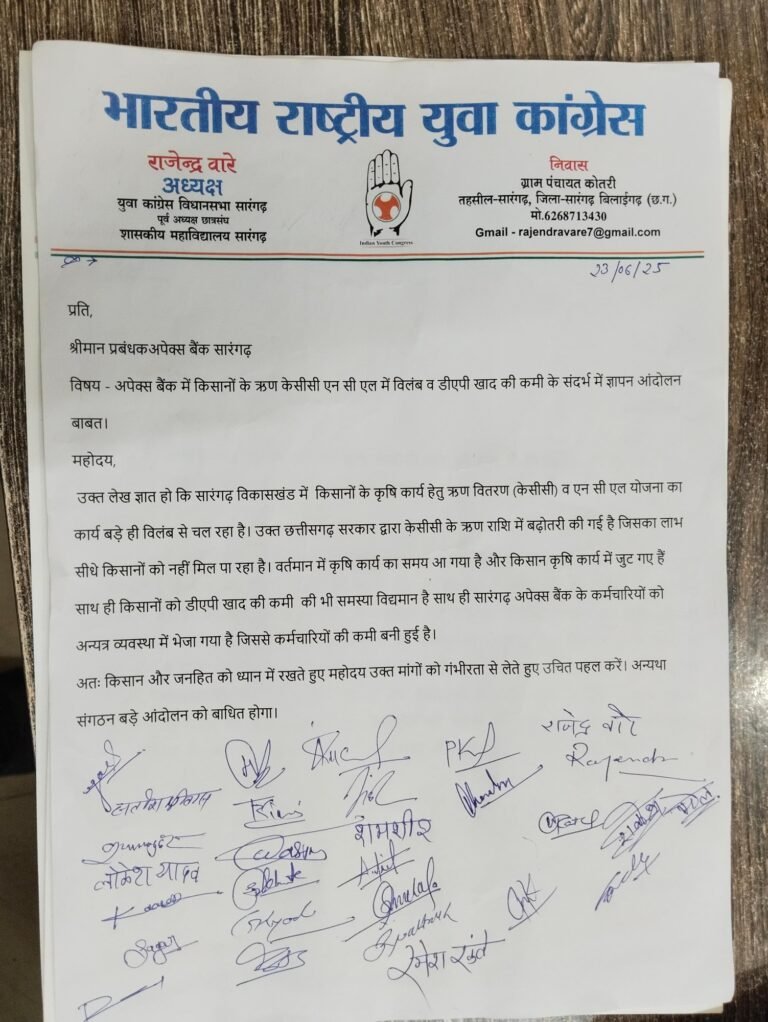 भारतीय राष्ट्रीय युवा कांग्रेस
राजेन्द्र वारे
अध्यक्ष
युवा कांग्रेस विधानसभा सारंगढ़
पूर्व अध्यक्ष छात्रसंघ
शासकीय महाविद्यालय सारंगढ़
Indian Youth Congress
निवास
ग्राम पंचायत कोतरी
तहसील-सारंगढ़, जिला-सारंगढ़ बिलाईगढ़ (छ.ग.)
मो.6268713430
Gmail - rajendravare7@gmail.com
23/06/25
प्रति,
श्रीमान प्रबंधकअपेक्स बैंक सारंगढ़
विषय - अपेक्स बैंक में किसानों के ऋण केसीसी एन सी एल में विलंब व डीएपी खाद की कमी के संदर्भ में ज्ञापन आंदोलन
बाबत।
महोदय,
उक्त लेख ज्ञात हो कि सारंगढ़ विकासखंड में किसानों के कृषि कार्य हेतु ऋण वितरण (केसीसी) व एन सी एल योजना का
कार्य बड़े ही विलंब से चल रहा है। उक्त छत्तीसगढ़ सरकार द्वारा केसीसी के ऋण राशि में बढ़ोतरी की गई है जिसका लाभ
सीधे किसानों को नहीं मिल पा रहा है। वर्तमान में कृषि कार्य का समय आ गया है और किसान कृषि कार्य में जुट गए हैं
साथ ही किसानों को डीएपी खाद की कमी की भी समस्या विद्यमान है साथ ही सारंगढ़ अपेक्स बैंक के कर्मचारियों को
अन्यत्र व्यवस्था में भेजा गया है जिससे कर्मचारियों की कमी बनी हुई है।
अतः किसान और जनहित को ध्यान में रखते हुए महोदय उक्त मांगों को गंभीरता से लेते हुए उचित पहल करें। अन्यथा
संगठन बड़े आंदोलन को बाधित होगा।
राजेन्द्र वारे
लोकेश यादव